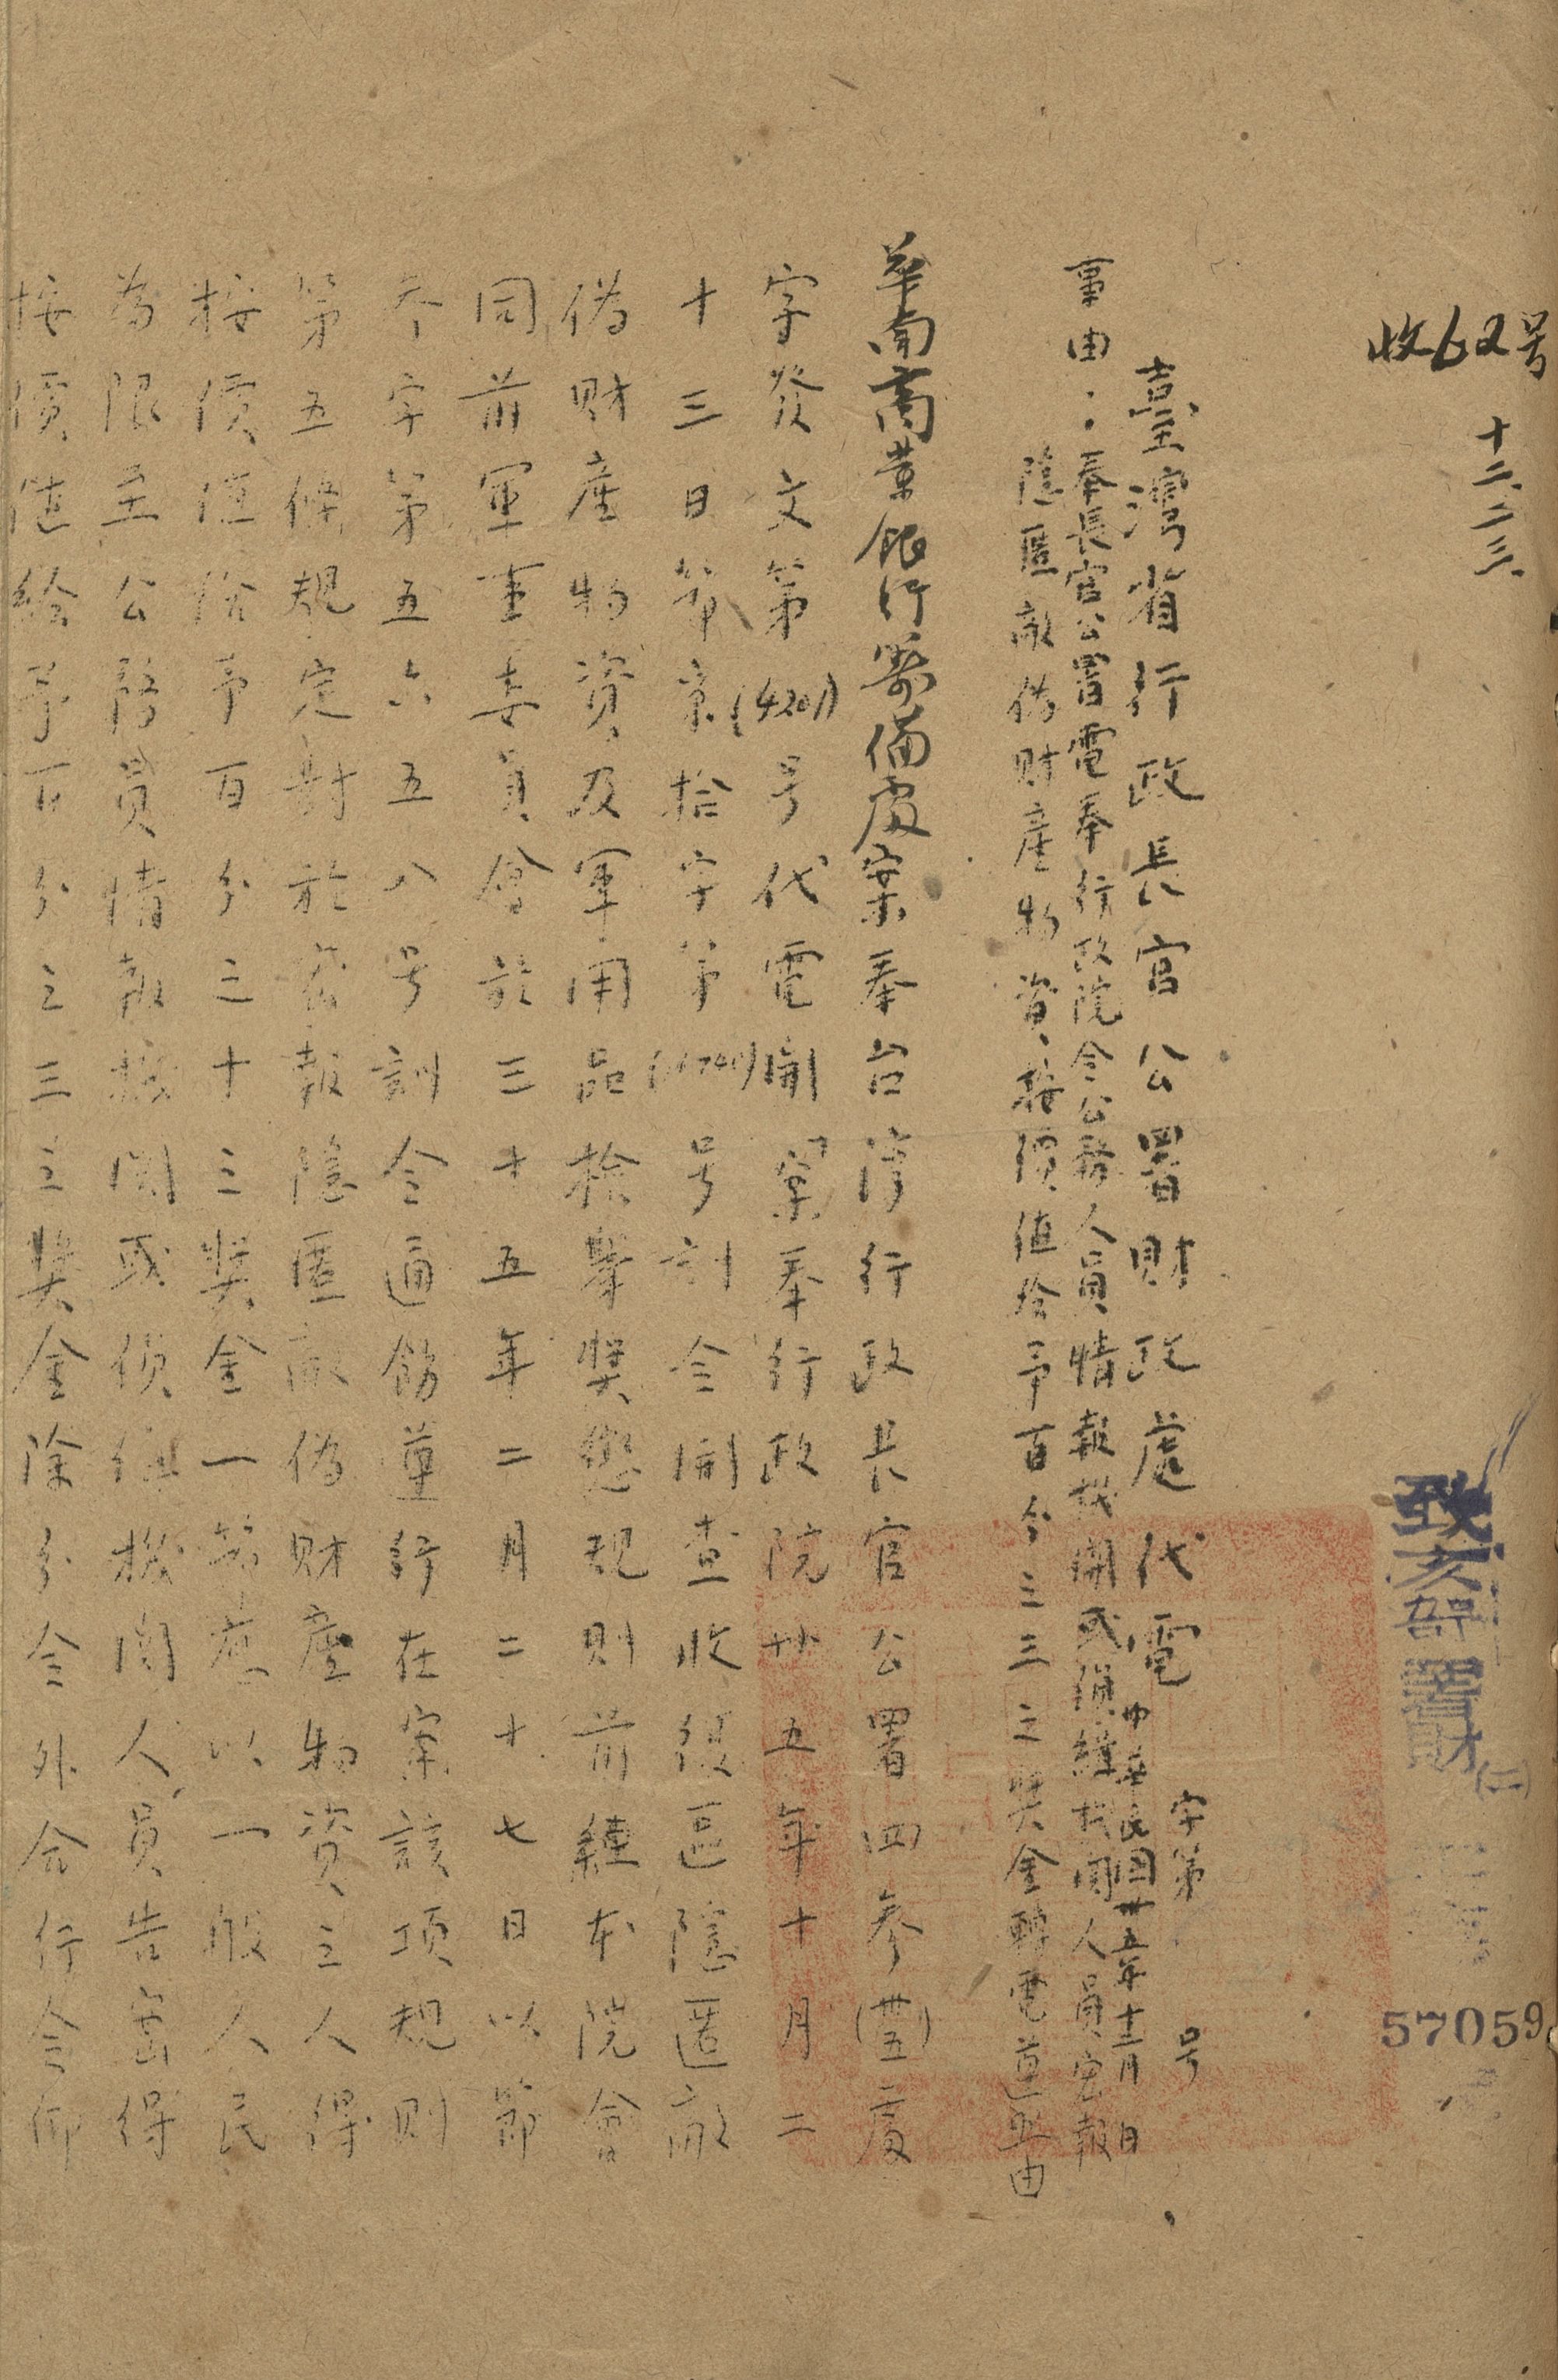 收62号
十二、二三、
致亥部署財(二)
57059
臺灣省行政長官公署財政處代電
字第 号
中華民國卅五年十二月 日
事由：奉長官公署電奉行政院令公務人員情報機関或偵緝機関人員密報
隱匿敵偽財產物資、按價值給予百分三三之奖金轉電遵照由
華南商業銀行籌備處案奉台湾行政長官公署(四)参(卅五)處
字發文第(4201)号代電開「案奉行政院卅五年十月二
十三日節京拾字第 号訓令開查收復區隱匿敵
偽財產物資及軍用品检舉奬懲規則前經本院會
同前軍事委員會於三十五年二月二十七日以節
叁字第五六五八号訓令通飭遵行在案該項規則
第五條規定對於密報隱匿敵偽財產物資之人得
按價值給予百分之三十三奬金一節應以一般人民
為限至公務員情報機関或偵緝機関人員告密得
按價值給予百分之三之奬金除分令外合行令仰